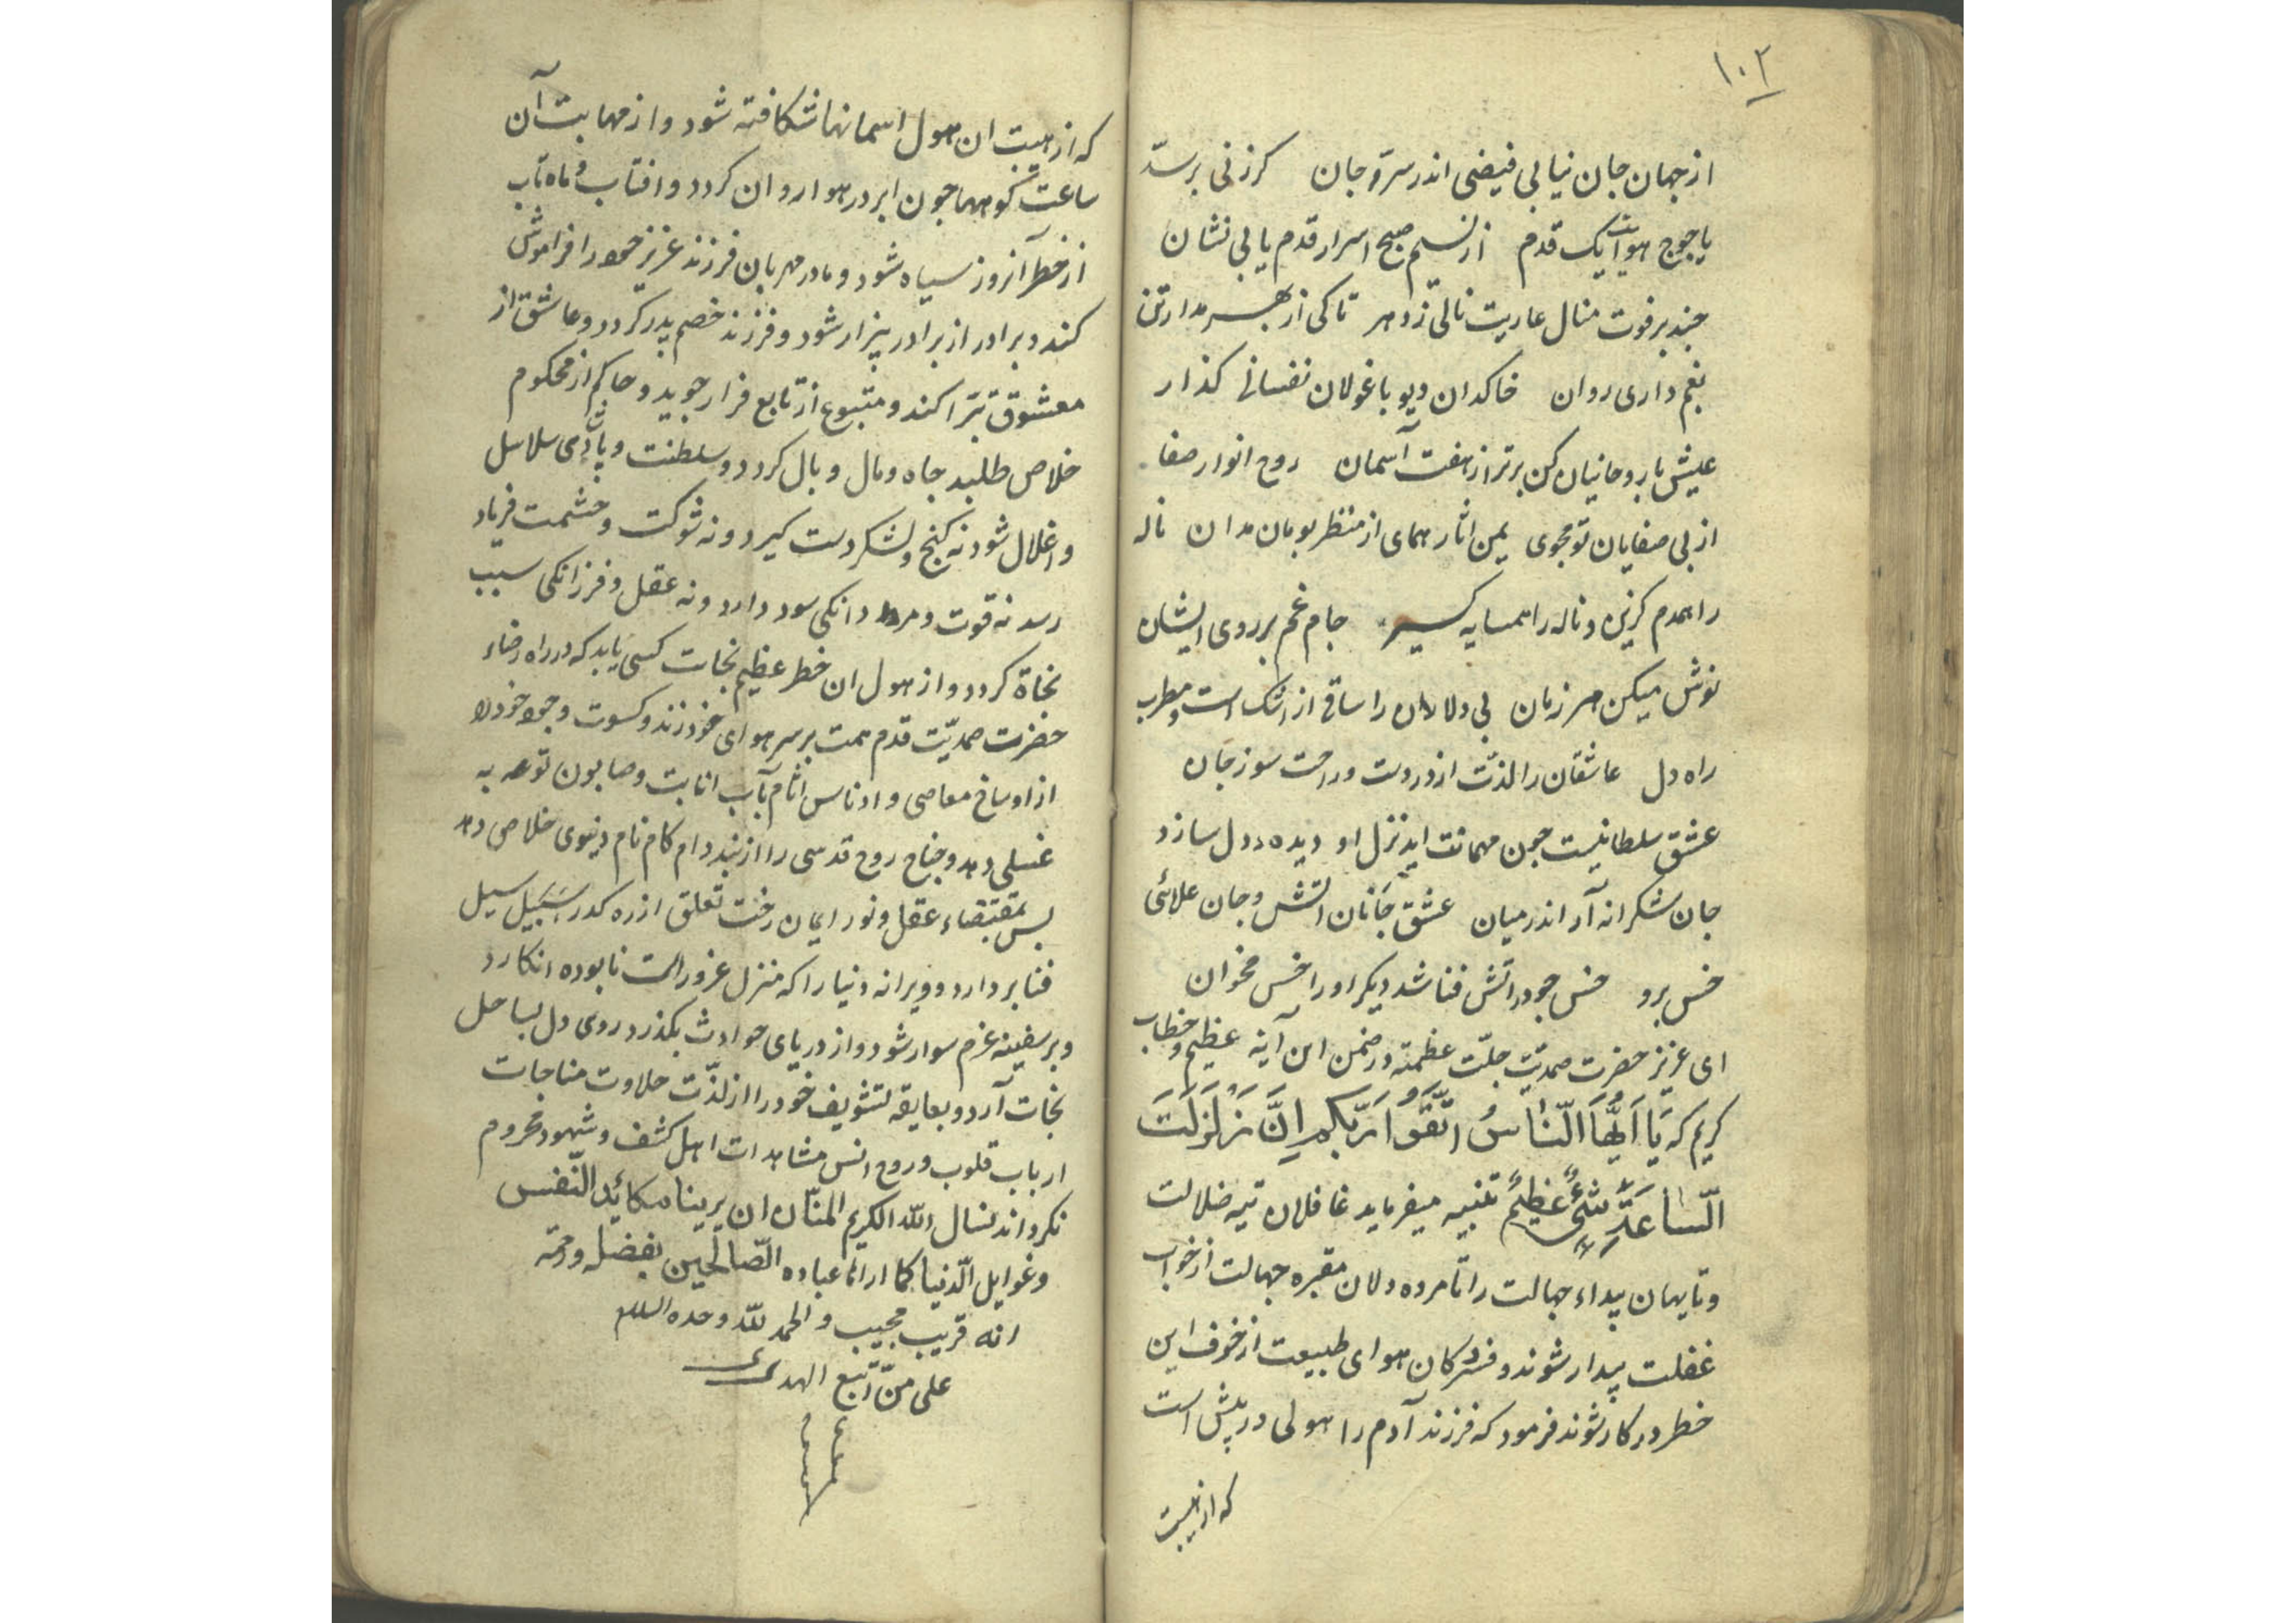 ۱۰۲
از جهان جان نیابی فیضی اندر سرّ و جان کرزنی بر سدّ
یاجوج هوایت یک قدم از نسیم صبح اسرار قدم یابی نشان
چند بر فوت منال عاریت نالی ز دهر تا کی از بهر مدار تن
بغم داری روان خاکدان دیو با غولان نفسانی کذار
عیش با روحانیان کن برتر از هفت آسمان روح انوار صفا
از بی صفایان تو مجوی یمن اثار همای از منظر بومان مدان ناله
را همدم کزین و ناله را همسایه کیر جام غم بر روی ایشان
نوش میکن هر زمان بی دلان را ساقی از اشک است و مطرب
راه دل عاشقان را لذّت از دردست و راحت سوز جان
عشق سلطانیست جون مهمانت اید نزل او دیده و دل سازد
جان شکرانه آر اندر میان عشق جانان اتش و جان علائی
خس برو خس جو در اتش فنا شد دیکر او را خس مخوان
ای عزیز حضرت صمدیّت جلّت عظمته در ضمن این آیه عظیم و خطاب
کریم که یَا اَیُّهَا النَّاسُ اتَّقُوا رَبَّکُم اِنَّ زَلزَلَتَ
السَّاعَةِ شَیْءٌ عَظِیمٌ تنبیه میفرماید غافلان تیه ضلالت
و تایهان بیداء جهالت را تا مرده دلان مقبره جهالت از خواب
غفلت بیدار شوند و فسردکان هوای طبیعت از خوف این
خطر در کار شوند فرمود که فرزند آدم را هولی در پیش است
که از هیبت
که از هیبت ان هول اسمانها شکافته شود و از مهابت آن
ساعت کوهها جون ابر در هوا روان کردد و افتاب و ماه تاب
از خطر آنروز سیاه شود و مادر مهربان فرزند عزیز خود را فراموش
کند و برادر از برادر بیزار شود و فرزند خصم پدر کردد و عاشق از
معشوق تبرّا کند و متبوع از تابع فرار جوید و حاکم از محکوم
خلاص طلبد جاه و مال و بال کردد و سلطنت و پادشاهی سلاسل
و اغلال شود نه کنج و لشکر دست کیرد و نه شوکت و حشمت فریاد
رسد نه قوت و مردانکی سود دارد و نه عقل و فرزانکی سبب
نجاة کردد و از هول ان خطر عظیم نجات کسی یابد که در راه رضاء
حضرت صمدیّت قدم همت بر سر هوای خود زند و کسوت وجود خود را
از اوساخ معاصی و ادناس اثام بآب انابت و صابون توبه
غسلی دهد و جناح روح قدسی را از بند دام کام نام دنیوی خلاص دهد
بس بمقتضاء عقل و نور ایمان رخت تعلق از ره کدر سبیل سیل
فنا بر دارد و ویرانه دنیا را که منزل غرور است نابوده انکارد
و بر سفینه عزم سوار شود و از دریای حوادث بکذرد و روی دل بساحل
نجات آرد و بعایقه تسویف خود را از لذّت حلاوت مناجات
ارباب قلوب و روح انس مشاهدات اهل کشف و شهود محروم
نکرداند نسال الله الکریم المنّان ان یرینا مکائد النّفس
و غوایل الدّنیا کما اراها عباده الصّالحین بفضله و رحمته
انه قریب مجیب و الحمد لله وحده السلام
علی من اتّبع الهدی